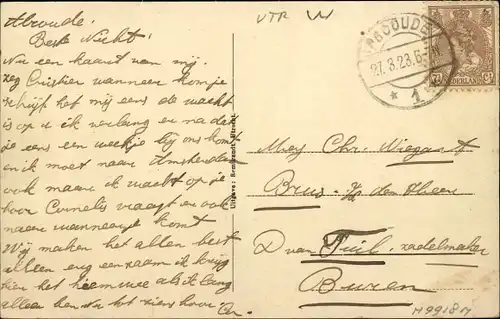 Abcoude.
Beste Nicht!
Nu een kaart van mij.
zeg Cristien wanneer kom je
schrijf het mij eens de wacht
is op u ik verlang er na dat
je eens een weekje bij ons komt
en ik moet naar Amsterdam
ook maar ik wacht op je
hoor Cornelis vraagt er ook
naar wanneer je komt
Wij maken het allen best
alleen erg eenzaam ik krijg
hier het heimwee als ik lang
alleen ben nu tot ziens hoor
UTR
ABCOUDE
27.3.23.6-
* 1
7½
NEDERLAND
7½
Uitgave: Rembrandt Utrecht
Mej. Chr. Wiegant
Brus. p/a den Heer
D van Tuil. zadelmaker
Buren
H9918M